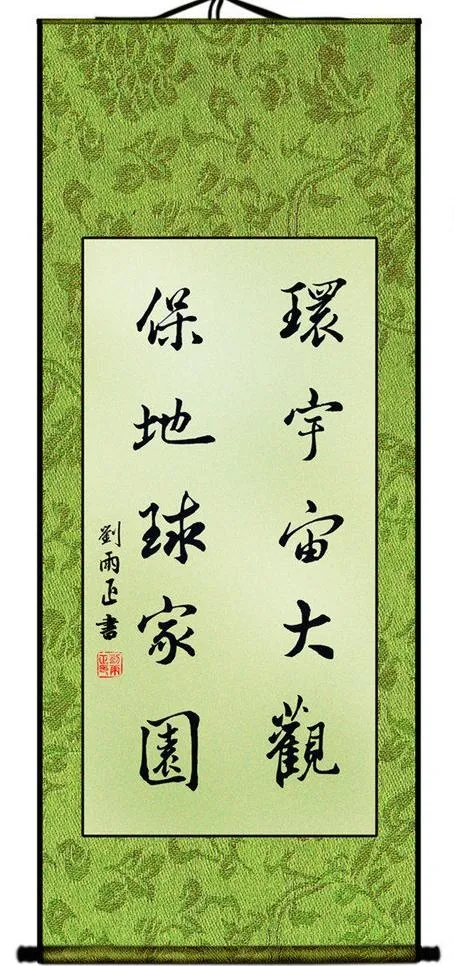 環宇宙大觀
保地球家園
劉雨正書